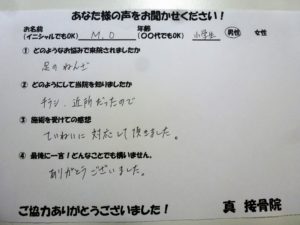 あなた様の声をお聞かせください！
お名前 年齢
(イニシャルでもOK) M.O (〇〇代でもOK) 小学生 男性 女性
① どのようなお悩みで来院されましたか
足のねんざ
② どのようにして当院を知りましたか
チラシ、近所だったので
③ 施術を受けての感想
ていねいに対応して頂きました。
④ 最後に一言！どんなことでも構いません。
ありがとうございました。
ご協力ありがとうございました！ 真 接骨院